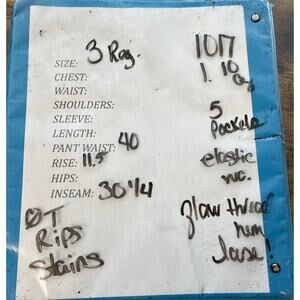 SIZE: 3 Reg.
CHEST:
WAIST:
SHOULDERS:
SLEEVE:
LENGTH:
PANT WAIST: 40
RISE: 11.5
HIPS:
INSEAM: 30 1/4
ØT
Rips
Stains
1017
1. 10
5
Pockets
elastic
wc.
flaw thread
hem
loose!